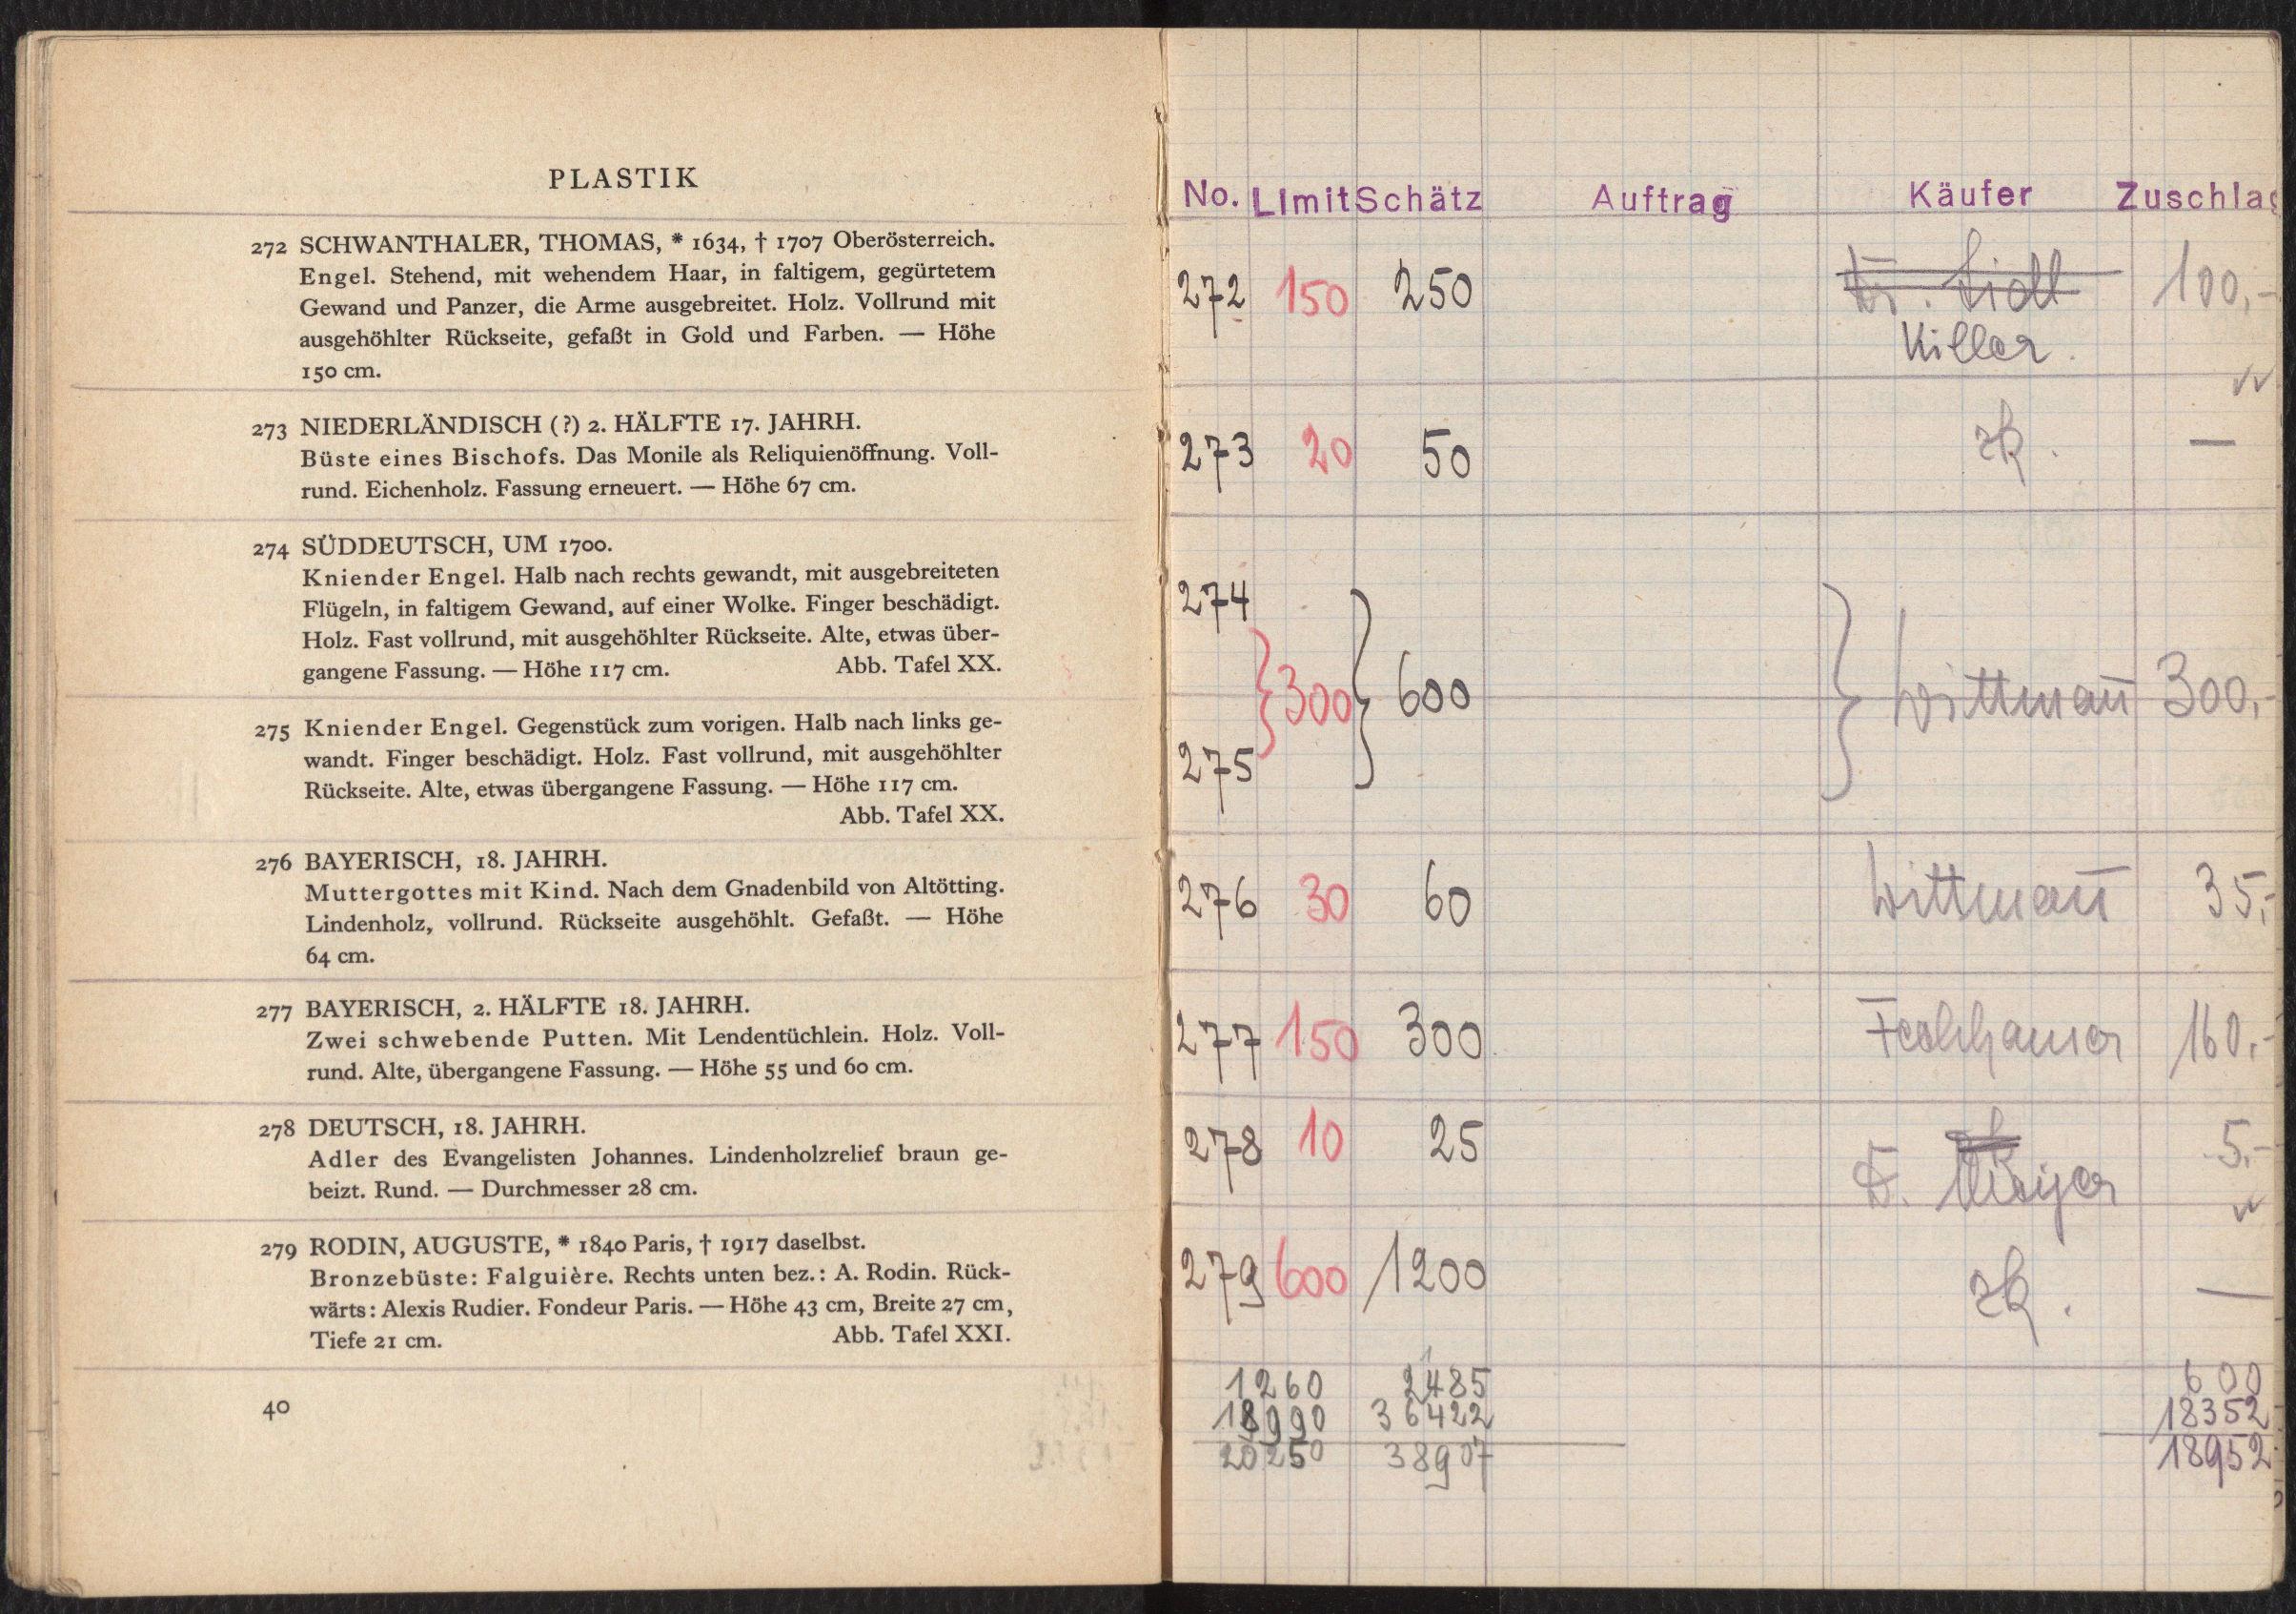 PLASTIK
272 SCHWANTHALER, THOMAS, * 1634, † 1707 Oberösterreich.
Engel. Stehend, mit wehendem Haar, in faltigem, gegürtetem
Gewand und Panzer, die Arme ausgebreitet. Holz. Vollrund mit
ausgehöhlter Rückseite, gefaßt in Gold und Farben. — Höhe
150 cm.
273 NIEDERLÄNDISCH (?) 2. HÄLFTE 17. JAHRH.
Büste eines Bischofs. Das Monile als Reliquienöffnung. Voll-
rund. Eichenholz. Fassung erneuert. — Höhe 67 cm.
274 SÜDDEUTSCH, UM 1700.
Kniender Engel. Halb nach rechts gewandt, mit ausgebreiteten
Flügeln, in faltigem Gewand, auf einer Wolke. Finger beschädigt.
Holz. Fast vollrund, mit ausgehöhlter Rückseite. Alte, etwas über-
gangene Fassung. — Höhe 117 cm. Abb. Tafel XX.
275 Kniender Engel. Gegenstück zum vorigen. Halb nach links ge-
wandt. Finger beschädigt. Holz. Fast vollrund, mit ausgehöhlter
Rückseite. Alte, etwas übergangene Fassung. — Höhe 117 cm.
Abb. Tafel XX.
276 BAYERISCH, 18. JAHRH.
Muttergottes mit Kind. Nach dem Gnadenbild von Altötting.
Lindenholz, vollrund. Rückseite ausgehöhlt. Gefaßt. — Höhe
64 cm.
277 BAYERISCH, 2. HÄLFTE 18. JAHRH.
Zwei schwebende Putten. Mit Lendentüchlein. Holz. Voll-
rund. Alte, übergangene Fassung. — Höhe 55 und 60 cm.
278 DEUTSCH, 18. JAHRH.
Adler des Evangelisten Johannes. Lindenholzrelief braun ge-
beizt. Rund. — Durchmesser 28 cm.
279 RODIN, AUGUSTE, * 1840 Paris, † 1917 daselbst.
Bronzebüste: Falguière. Rechts unten bez.: A. Rodin. Rück-
wärts: Alexis Rudier. Fondeur Paris. — Höhe 43 cm, Breite 27 cm,
Tiefe 21 cm. Abb. Tafel XXI.
40
No. Limit Schätz Auftrag Käufer Zuschlag
272 150 250 100,-
Killer
273 20 50 zk. —
274
300 600 Wittmann 300,-
275
276 30 60 Wittmann 35,-
277 150 300 160,-
278 10 25 5,-
279 600 1200 zk. —
1260 2485 600
18990 36422 18352
20250 38907 18952